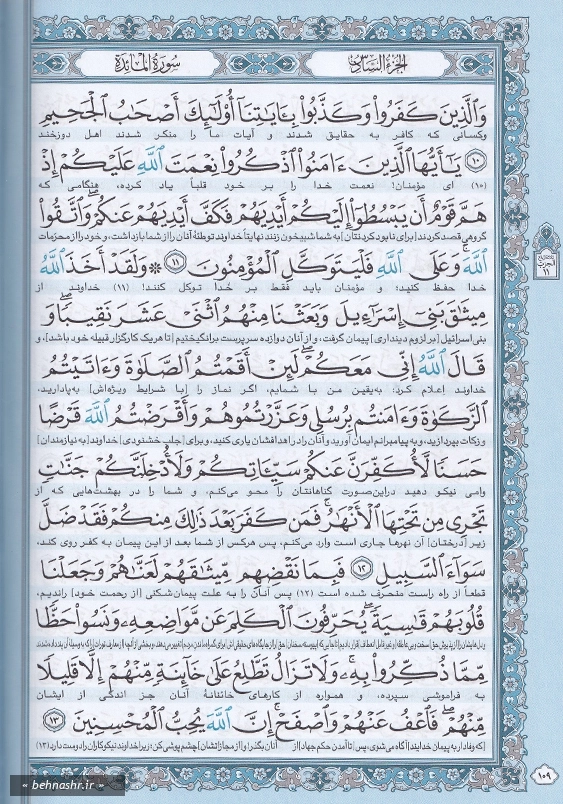 الجزء السادس
سورة المائدة
وَالَّذِينَ كَفَرُوا وَكَذَّبُوا بِآيَاتِنَا أُولَٰئِكَ أَصْحَابُ الْجَحِيمِ
وکسانی که کافر به حقایق شدند و آیات ما را منکر شدند اهل دوزخند
﴿١٠﴾ يَا أَيُّهَا الَّذِينَ ءَامَنُوا اذْكُرُوا نِعْمَتَ اللَّهِ عَلَيْكُمْ إِذْ
(١٠) ای مؤمنان! نعمت خدا را بر خود قلباً یاد کرده، هنگامی که
هَمَّ قَوْمٌ أَن يَبْسُطُوا إِلَيْكُمْ أَيْدِيَهُمْ فَكَفَّ أَيْدِيَهُمْ عَنكُمْ وَاتَّقُوا
گروهی قصد کردند [برای نابود کردنتان] به شما شبیخون زنند نهایتاً خداوند توطئهٔ آنان را از شما بازداشت، و خود را از محرمات
اللَّهَ وَعَلَى اللَّهِ فَلْيَتَوَكَّلِ الْمُؤْمِنُونَ ﴿١١﴾ ۞ وَلَقَدْ أَخَذَ اللَّهُ
خدا حفظ کنید؛ و مؤمنان باید فقط بر خدا توکل کنند! (١١) خداوند از
مِيثَاقَ بَنِي إِسْرَاءِيلَ وَبَعَثْنَا مِنْهُمُ اثْنَيْ عَشَرَ نَقِيبًا وَ
بنی‌اسرائیل [بر لزوم دینداری] پیمان گرفت، و از آنان دوازده سرپرست برانگیختیم [تا هریک کارگزار قبیله خود باشد]، و
قَالَ اللَّهُ إِنِّي مَعَكُمْ لَئِنْ أَقَمْتُمُ الصَّلَاةَ وَءَاتَيْتُمُ
خداوند اعلام کرد: به‌یقین من با شمایم، اگر نماز را [با شرایط ویژه‌اش] به‌پادارید،
الزَّكَوٰةَ وَءَامَنتُم بِرُسُلِي وَعَزَّرْتُمُوهُمْ وَأَقْرَضْتُمُ اللَّهَ قَرْضًا
و زکات بپردازید، و به پیامبرانم ایمان آورید و آنان را در اهدافشان یاری کنید، و برای [جلب خشنودی] خداوند [به نیازمندان]
حَسَنًا لَّأُكَفِّرَنَّ عَنكُمْ سَيِّئَاتِكُمْ وَلَأُدْخِلَنَّكُمْ جَنَّاتٍ
وامی نیکو دهید دراین‌صورت گناهانتان را محو می‌کنم، و شما را در بهشت‌هایی که از
تَجْرِي مِن تَحْتِهَا الْأَنْهَارُ فَمَن كَفَرَ بَعْدَ ذَٰلِكَ مِنكُمْ فَقَدْ ضَلَّ
زیر [درختان] آن نهرها جاری است وارد می‌کنم، پس هرکس از شما بعد از این پیمان به کفر روی کند،
سَوَاءَ السَّبِيلِ ﴿١٢﴾ فَبِمَا نَقْضِهِم مِّيثَاقَهُمْ لَعَنَّاهُمْ وَجَعَلْنَا
قطعاً از راه راست منحرف شده است (١٢) پس آنان را به علت پیمان‌شکنی [از رحمت خود] راندیم،
قُلُوبَهُمْ قَاسِيَةً يُحَرِّفُونَ الْكَلِمَ عَن مَّوَاضِعِهِ وَنَسُوا حَظًّا
مِّمَّا ذُكِّرُوا بِهِ وَلَا تَزَالُ تَطَّلِعُ عَلَىٰ خَائِنَةٍ مِّنْهُمْ إِلَّا قَلِيلًا
به فراموشی سپرده، و همواره از کارهای خائنانهٔ آنان جز اندکی از ایشان
مِّنْهُمْ فَاعْفُ عَنْهُمْ وَاصْفَحْ إِنَّ اللَّهَ يُحِبُّ الْمُحْسِنِينَ ﴿١٣﴾
[که وفادار به پیمان خدایند] آگاه می‌شوی، پس [تا آمدن حکم جهاد] از آنان بگذر و [از مجازاتشان] چشم‌پوشی کن؛ زیرا خداوند نیکوکاران را دوست دارد (١٣)
١٠٩
« behnashr.ir »